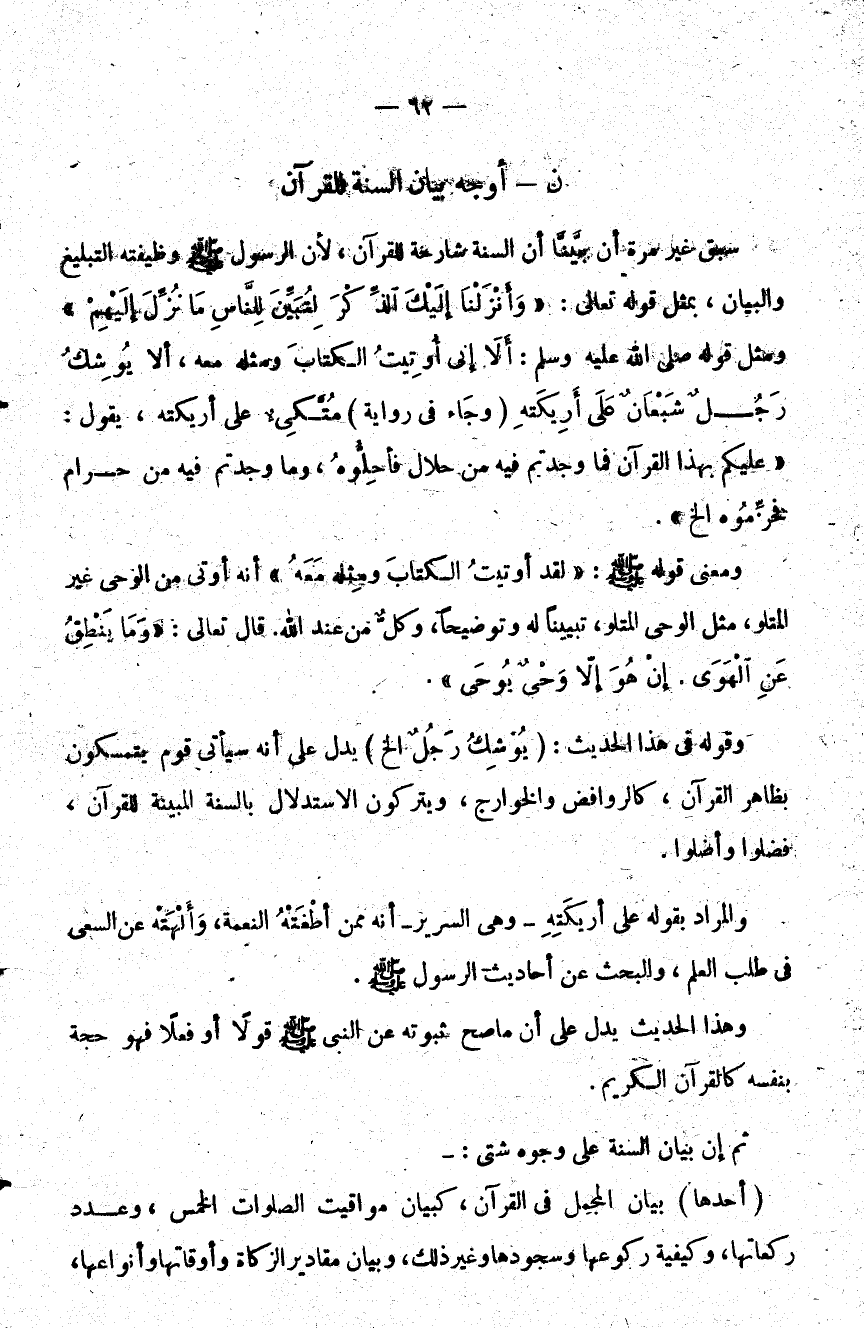 — ٦٢ —
ن — أوجه بيان السنة للقرآن
سبق غير مرة أن بيَّنَّا أن السنة شارحة للقرآن ، لأن الرسول ﷺ وظيفته التبليغ
والبيان ، بمثل قوله تعالى : « وَأَنْزَلْنَا إِلَيْكَ ٱلذِّكْرَ لِتُبَيِّنَ لِلنَّاسِ مَا نُزِّلَ إِلَيْهِمْ »
ومثل قوله صلى الله عليه وسلم : أَلَا إنى أُوتيتُ الـكتابَ ومثله معه ، ألا يُوشكُ
رَجُــــلٌ شَبْعَانٌ عَلَى أَرِيكَتهِ ( وجَاء فى رواية ) مُتَّـكىء على أريكته ، يقول :
« عليكم بهذا القرآن فما وجدتم فيه من حلال فأحِلُّوهُ ، وما وجدتم فيه من حــرام
فحرِّمُوه الخ » .
ومعنى قوله ﷺ : « لقد أوتيتُ الـكتابَ ومِثله مَعَهُ » أنه أوتى من الوحى غير
المتلو ، مثل الوحى المتلو ، تبييناً له وتوضيحاً ، وكلٌّ من عند الله . قال تعالى : «وَمَا يَنْطِقُ
عَنِ ٱلْهَوَى . إِنْ هُوَ إِلَّا وَحْىٌ يُوحَى » .
وقوله فى هذا الحديث : ( يُوْشِكُ رَجُلٌ الخ ) يدل على أنه سيأتى قوم يتمسكون
بظاهر القرآن ، كالروافض والخوارج ، ويتركون الاستدلال بالسنة المبينة للقرآن ،
فضلوا وأضلوا .
والمراد بقوله على أريكَتِهِ ــ وهى السرير ــ أنه ممن أطْغَتْهُ النعمة، وَأَلْهَتْه عن السعى
فى طلب العلم ، والبحث عن أحاديث الرسول ﷺ .
وهذا الحديث يدل على أن ماصح ثبوته عن النبى ﷺ قولًا أو فعلًا فهو حجة
بنفسه كالقرآن الـكريم .
ثم إن بيان السنة على وجوه شتى : ــ
( أحدها ) بيان المجمل فى القرآن ، كبيان مواقيت الصلوات الخمس ، وعــدد
ركعاتها، وكيفية ركوعها وسجودها وغير ذلك، وبيان مقادير الزكاة وأوقاتها وأنواعها،